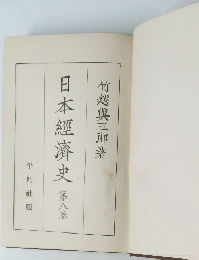 竹越與三郎著
日本經濟史 第八卷
平凡社版